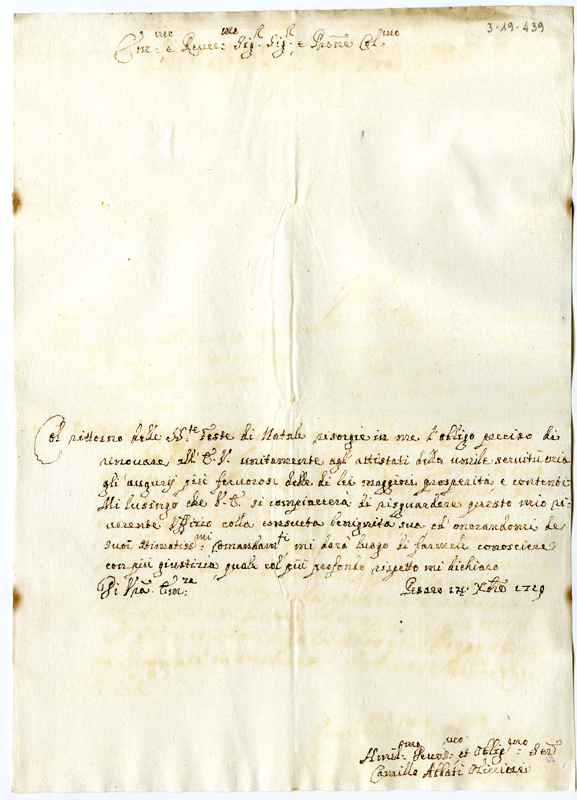 3-19-439
Em:mo e Reve:mo Sig.r Sig.r e Prone Col:mo
Col rittorno delle SS.te Feste di Natale risorgie in me l'obligo preciso di
rinovare all'E.V. unitamente agl'attestati della umile servitù mia
gli augurj più fervorosi delle di lei maggiori prosperità, e contenti
Mi lusingo che V.E. si compiacerà di risguardare questo mio ri-
verente Uffizio colla consueta benignità sua, ed onorandomi de
suoi stimatiss:mi comandam:ti mi darà luogo di farmele conoscere
con più giustizia quale col più profondo rispetto mi dichiaro
Di Vra. Em:za Pesaro 14 Xbre 1729
Humil:mo Devot:mo et Oblig:mo Ser.
Camillo Abbati Olivieri